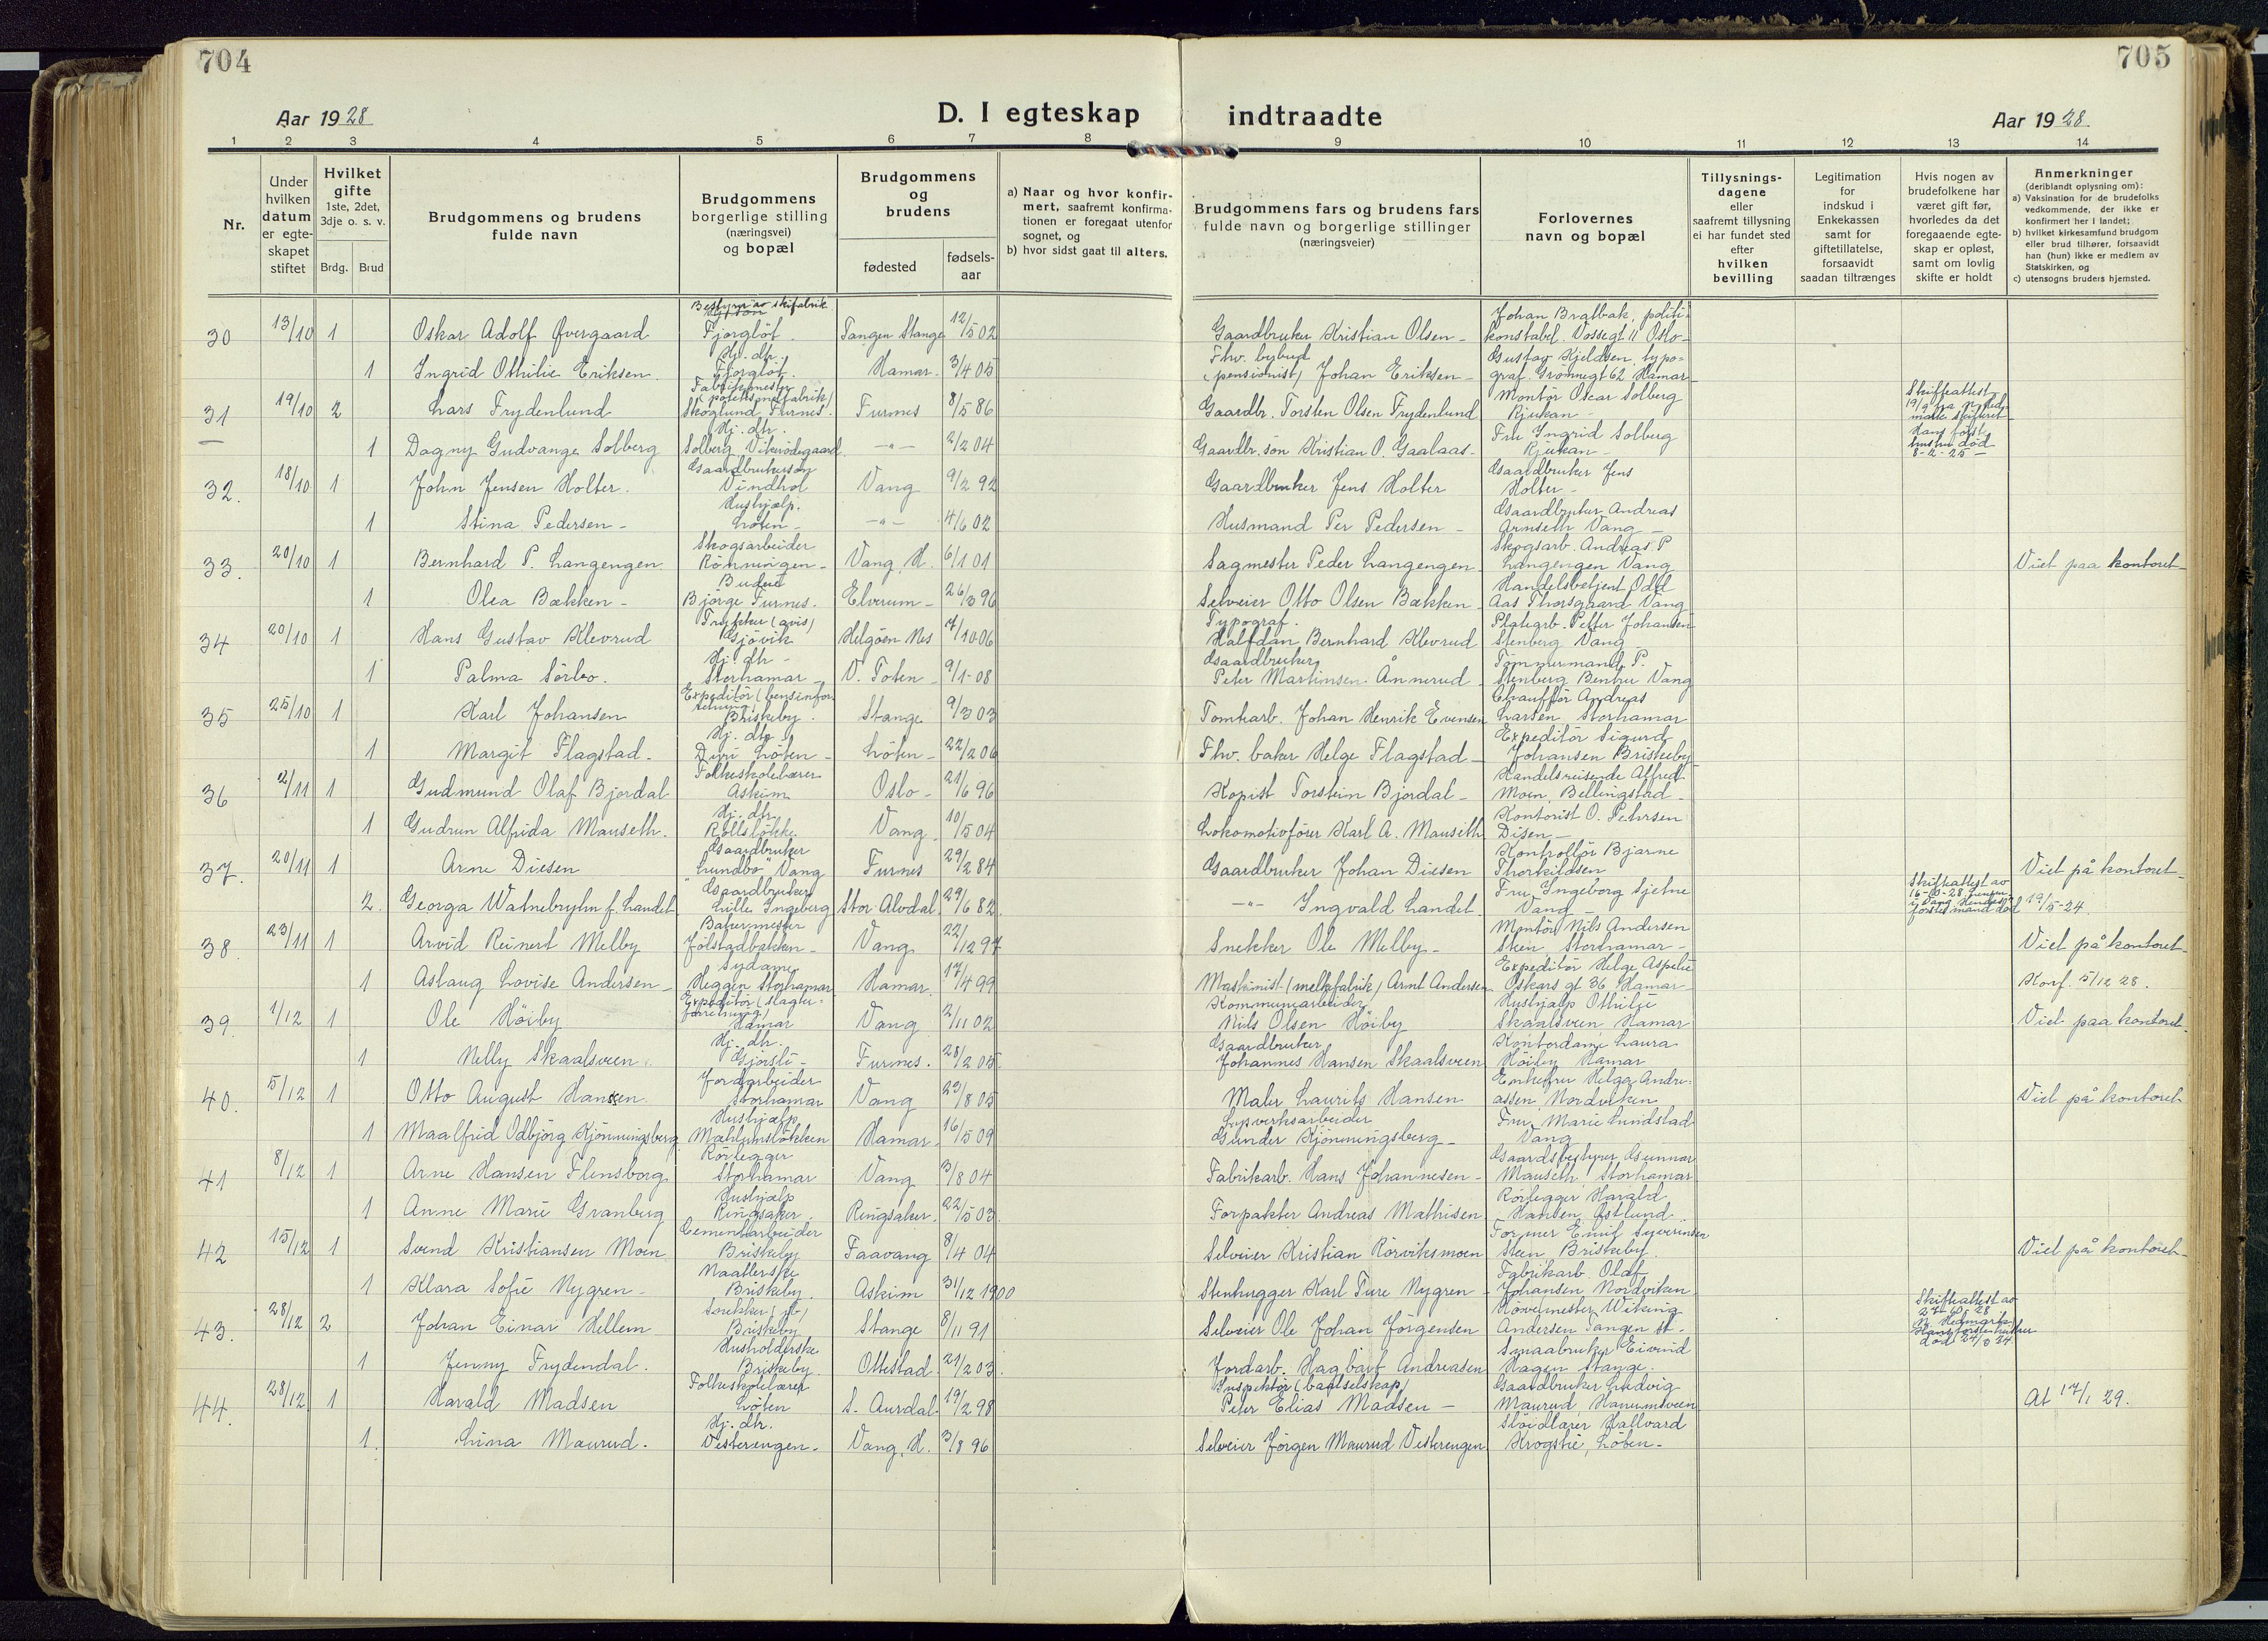 704
705
Aar 1928
D. I egteskap indtraadte
Aar 1928.
1 2 3 4 5 6 7 8 9 10 11 12 13 14
Nr.
Under hvilken datum er egteskapet stiftet
Hvilket gifte 1ste, 2det, 3dje o. s. v.
Brdg. Brud
Brudgommens og brudens fulde navn
Brudgommens borgerlige stilling (næringsvei) og bopæl
Brudgommens og brudens
fødested
fødsels-aar
a) Naar og hvor konfirmert, saafremt konfirmationen er foregaat utenfor sognet, og
b) hvor sidst gaat til alters.
Brudgommens fars og brudens fars fulde navn og borgerlige stillinger (næringsveier)
Forlovernes navn og bopæl
Tillysningsdagene eller saafremt tillysning ei har fundet sted efter hvilken bevilling
Legitimation for indskud i Enkekassen samt for giftetillatelse, forsaavidt saadan tiltrænges
Hvis nogen av brudefolkene har været gift før, hvorledes da det foregaaende egteskap er opløst, samt om lovlig skifte er holdt
Anmerkninger (deriblandt oplysning om):
a) Vaksination for de brudefolks vedkommende, der ikke er konfirmert her i landet;
b) hvilket kirkesamfund brudgom eller brud tilhører, forsaavidt han (hun) ikke er medlem av Statskirken, og
c) utensogns bruders hjemsted.
30 13/10 1 Oskar Adolf Øvergaard Bestyrer av skifabrik Fjorglöt. Tangen Stange 12/5 02 Gaardbruker Kristian Olsen - Johan Bratbak, politikonstabel. Vossegt 11 Oslo -
1 Ingrid Othilie Eriksen. Hj. dtr. Fjorglöt. Hamar. 3/4 05 Fhv. bybud (pensionist) Johan Eriksen - Gustav Kjeldsen, typograf. Grönnegt 62 Hamar
31 19/10 2 Lars Frydenlund Skoglund Furnes. Furnes 8/5 86 Gaardbr. Torsten Olsen Frydenlund Montör Oscar Solberg Rjukan - Skifteattest 19/9 Hans første hustru død 8-2-25 -
1 Dagny Gudvange Solberg Hj. dtr. Solberg Vikersödegaard. -"- 2/2 04 Gaardbr. sön Kristian O. Gaalaas - Fru Ingrid Solberg Rjukan -
32. 18/10 1 John Jensen Holter. Gaardbrukersön Vindhol Vang 9/2 92 Gaardbruker Jens Holter Gaardbruker Jens Holter -
1 Stina Pedersen - Hushjælp. Löten - -"- 4/6 02 Husmand Per Pedersen - Gaardbruker Andreas Arnseth Vang -
33. 20/10 1 Bernhard P. Langengen. Skogsarbeider Rönningen - Vang, H. 6/1 01 Sagmester Peder Langengen Skogsarb. Andreas P. Langengen Vang Viet paa kontoret -
1 Olea Bækken - Budeie Bjørge Furnes. Elverum - 26/3 96 Selveier Otto Olsen Bækken Handelsbetjent Odd Aas Thorsgaard Vang
34 20/10 1 Hans Gustav Klevrud Trykker (avis) Gjövik Helgöen Nes 7/10 06 Typograf. Halfdan Bernhard Klevrud Platearb. Petter Johansen Stenberg Vang
1 Palma Sörbo. Hj. dtr - Storhamar - V. Toten - 9/1-08 Gaardbruker Peter Martinsen Ånnerud Tömmermand P. Stenberg Vang
35 25/10 1 Karl Johansen Expeditör (bensinforretning) Briskeby. Stange 9/3 03 Tomtarb. Johan Henrik Evensen Chaufför Andreas Larsen Storhamar
1 Margit Flagstad. Hj. dtr. Löten - Löten - 22/2 06 Fhv. baker Helge Flagstad - Expeditör Sigurd Johansen Briskeby
36 2/11 1 Gudmund Olaf Bjordal Folkeskolelærer Askim Oslo - 21/6 96 Kopist Torstein Bjordal - Handelsreisende Alfred Moen Bellingstad -
1 Gudrun Alfrida Mauseth. Hj. dtr. Rollslökke Vang. 10/5 04 Lokomotivfører Karl A. Mauseth Kontorist O. Pettersen Disen -
37. 20/11 1 Arne Diesen Gaardbruker "Lundbo" Vang Furnes 29/2 84 Gaardbruker Johan Diesen Kontrollör Bjarne Thorkildsen Viet på kontoret -
2. Georga Watnebryhn f. Landet Gaardbruker Lille Ingeberg Stor Alvdal. 29/6 82 -"- Ingvald Landet. Fru Ingeborg Sjetne Vang - Skifteattest av 16-10-28 Vang. Hendes første mand död 19/5-24.
38. 23/11 1 Arvid Reinert Melby Bakermester Jölstadbakken - Vang 22/12 97 Snekker Ole Melby - Montör Nils Andersen Steen Storhamar - Viet på kontoret -
1 Aslaug Lovise Andersen - Sydame Heggen Storhamar Hamar 17/4 99 Maskinist (melkfabrik) Arnt Andersen Expeditör Helge Aspelie Oskars gt 36 Hamar - Konf. 5/12 28.
39. 1/12 1 Ole Höiby Expeditör (slagterforretning) Hamar Vang 2/11 02 Kommunearbeider Nils Olsen Höiby Hushjælp Othilie Skaalsveen Hamar Viet paa kontoret.
1 Nelly Skaalsveen. Hj. dtr. Gjörsli - Furnes. 28/2 05 Gaardbruker Johannes Hansen Skaalsveen Kontordame Laura Höiby Hamar
40. 5/12 1 Otto August Hansen. Jordarbeider Storhamar Vang 23/8 05 Maler Laurits Hansen Enkefru Helga Andreassen, Nordviken Viet på kontoret
1 Maalfrid Odbjörg Kjönningsberg. Hushjælp Mæhlumslökken Hamar. 16/5 09 Gunder Kjönningsberg - Fru Marie Lundstad Vang
41 8/12 1 Arne Hansen Flensborg Rörlegger Storhamar Vang 3/8 04 Fabrikarb. Hans Johannesen - Gaardsbestyrer Gunnar Mauseth, Storhamar
1 Anne Marie Granberg Hushjælp Ringsaker. Ringsaker. 22/5 03. Forpakter Andreas Mathisen Rörlegger Harald Hansen Östlund
42 15/12 1 Svend Kristiansen Moen Cementarbeider Briskeby Faavang 8/4 04 Selveier Kristian Rörviksmoen Former Emil Syversen Steen Briskeby. Viet på kontoret -
1 Klara Sofie Nygren - Naatlerske Briskeby. Askim 31/12 1900 Stenhugger Karl Ture Nygren - Fabrikarb. Olaf Johansen Nordviken
43. 28/12 2 Johan Einar Hellem Snekker Briskeby Stange 8/11 91 Selveier Ole Johan Jörgensen Hövelmester Wiking Andersen Tangen st. Skifteattest av N. Hedmark. Hans første hustru död 24/3 24
1 Jenny Frydendal. Husholderske Briskeby. Ottestad. 21/2 03. Jordarb. Hagbart Andreasen Smaabruker Eivind Hagen Stange.
44. 28/12 1 Harald Madsen Folkeskolelærer Löten S. Aurdal. 19/2 98 Inspektör Peter Elias Madsen - Gaardbruker Ludvig Maurud At 17/1 29.
1. Lina Maurud. Hj. dtr. Vesterengen - Vang, H. 3/8 96 Selveier Jörgen Maurud Vesterengen Slöidlærer Hallvard Krogstie, Löten -